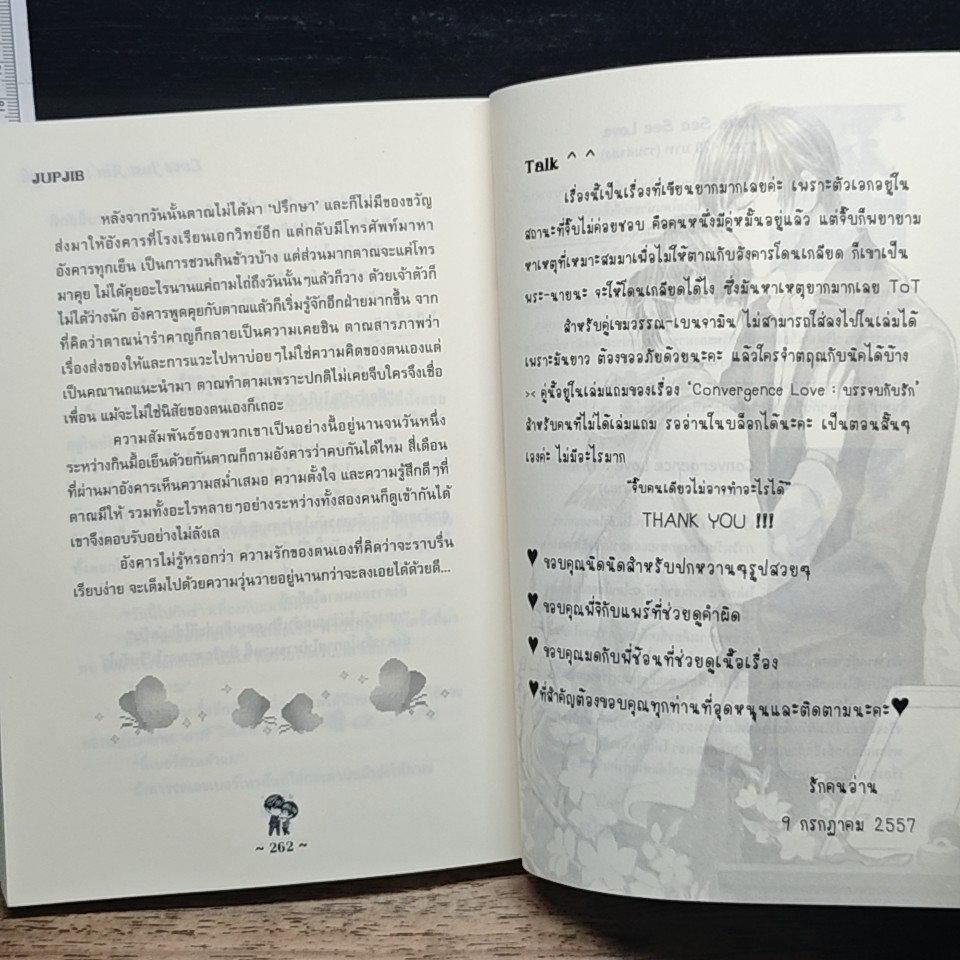 JUPJIB
หลังจากวันนั้นตาณไม่ได้มา ‘ปรึกษา’ และก็ไม่มีของขวัญ
ส่งมาให้อังคารที่โรงเรียนเอกวิทย์อีก แต่กลับมีโทรศัพท์มาหา
อังคารทุกเย็น เป็นการชวนกินข้าวบ้าง แต่ส่วนมากตาณจะแค่โทร
มาคุย ไม่ได้คุยอะไรนานแค่ถามไถ่ถึงวันนั้นๆแล้วก็วาง ด้วยเจ้าตัวก็
ไม่ได้ว่างนัก อังคารพูดคุยกับตาณแล้วก็เริ่มรู้จักอีกฝ่ายมากขึ้น จาก
ที่คิดว่าตาณน่ารำคาญก็กลายเป็นความเคยชิน ตาณสารภาพว่า
เรื่องส่งของให้และการแวะไปหาบ่อยๆไม่ใช่ความคิดของตนเองแต่
เป็นคณานถแนะนำมา ตาณทำตามเพราะปกติไม่เคยจีบใครจึงเชื่อ
เพื่อน แม้จะไม่ใช่นิสัยของตนเองก็เถอะ
ความสัมพันธ์ของพวกเขาเป็นอย่างนี้อยู่นานจนวันหนึ่ง
ระหว่างกินมื้อเย็นด้วยกันตาณก็ถามอังคารว่าคบกันได้ไหม สี่เดือน
ที่ผ่านมาอังคารเห็นความสม่ำเสมอ ความตั้งใจ และความรู้สึกดีๆที่
ตาณมีให้ รวมทั้งอะไรหลายๆอย่างระหว่างทั้งสองคนก็ดูเข้ากันได้
เขาจึงตอบรับอย่างไม่ลังเล
อังคารไม่รู้หรอกว่า ความรักของตนเองที่คิดว่าจะราบรื่น
เรียบง่าย จะเต็มไปด้วยความวุ่นวายอยู่นานกว่าจะลงเอยได้ด้วยดี...
~ 262 ~
Talk ^ ^
เรื่องนี้เป็นเรื่องที่เขียนยากมากเลยค่ะ เพราะตัวเอกอยู่ใน
สถานะที่จิ๊บไม่ค่อยชอบ คือคนหนึ่งมีคู่หมั้นอยู่แล้ว แต่จิ๊บก็พยายาม
หาเหตุที่เหมาะสมมาเพื่อไม่ให้ตาณกับอังคารโดนเกลียด ก็เขาเป็น
พระ-นายนะ จะให้โดนเกลียดได้ไง ซึ่งมันหาเหตุยากมากเลย ToT
สำหรับคู่เขมวรรณ-เบนจามิน ไม่สามารถใส่ลงไปในเล่มได้
เพราะมันยาว ต้องขออภัยด้วยนะคะ แล้วใครจำตฤณกับนิคได้บ้าง
>< คู่นี้อยู่ในเล่มแถมของเรื่อง ‘Convergence Love : บรรจบกับรัก’
สำหรับคนที่ไม่ได้เล่มแถม รออ่านในบล็อกได้นะคะ เป็นตอนสั้นๆ
เองค่ะ ไม่มีอะไรมาก
“จิ๊บคนเดียวไม่อาจทำอะไรได้”
THANK YOU !!!
♥ ขอบคุณนิดนิดสำหรับปกหวานๆรูปสวยๆ
♥ ขอบคุณพี่จิกับแพร์ที่ช่วยดูคำผิด
♥ ขอบคุณมดกับพี่ช้อนที่ช่วยดูเนื้อเรื่อง
♥ ที่สำคัญต้องขอบคุณทุกท่านที่อุดหนุนและติดตามนะคะ♥
รักคนอ่าน
9 กรกฎาคม 2557